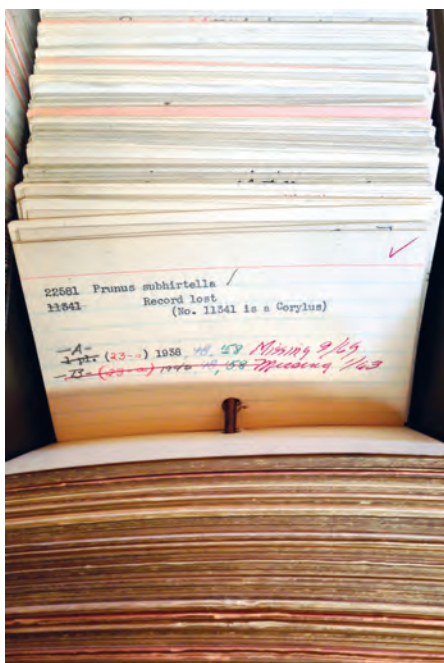 22581 Prunus subhirtella /
11341 Record lost
(No. 11341 is a Corylus)
-A-
1 pl. (23-a) 1938, 48, '58 Missing 9/65
-B- (23-a) 1940 48, '58 Missing 1/63